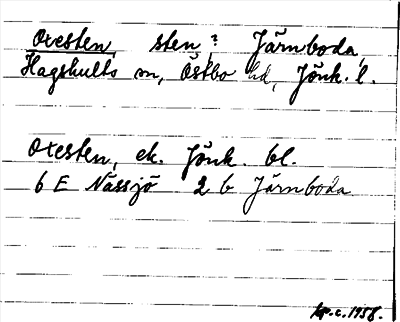 Oxesten, sten? Järnboda,
Hagshults sn, Östbo hd, Jönk. l.
Oxesten, ek. Jönk. bl.
6 E Nässjö 2 b Järnboda
1958.